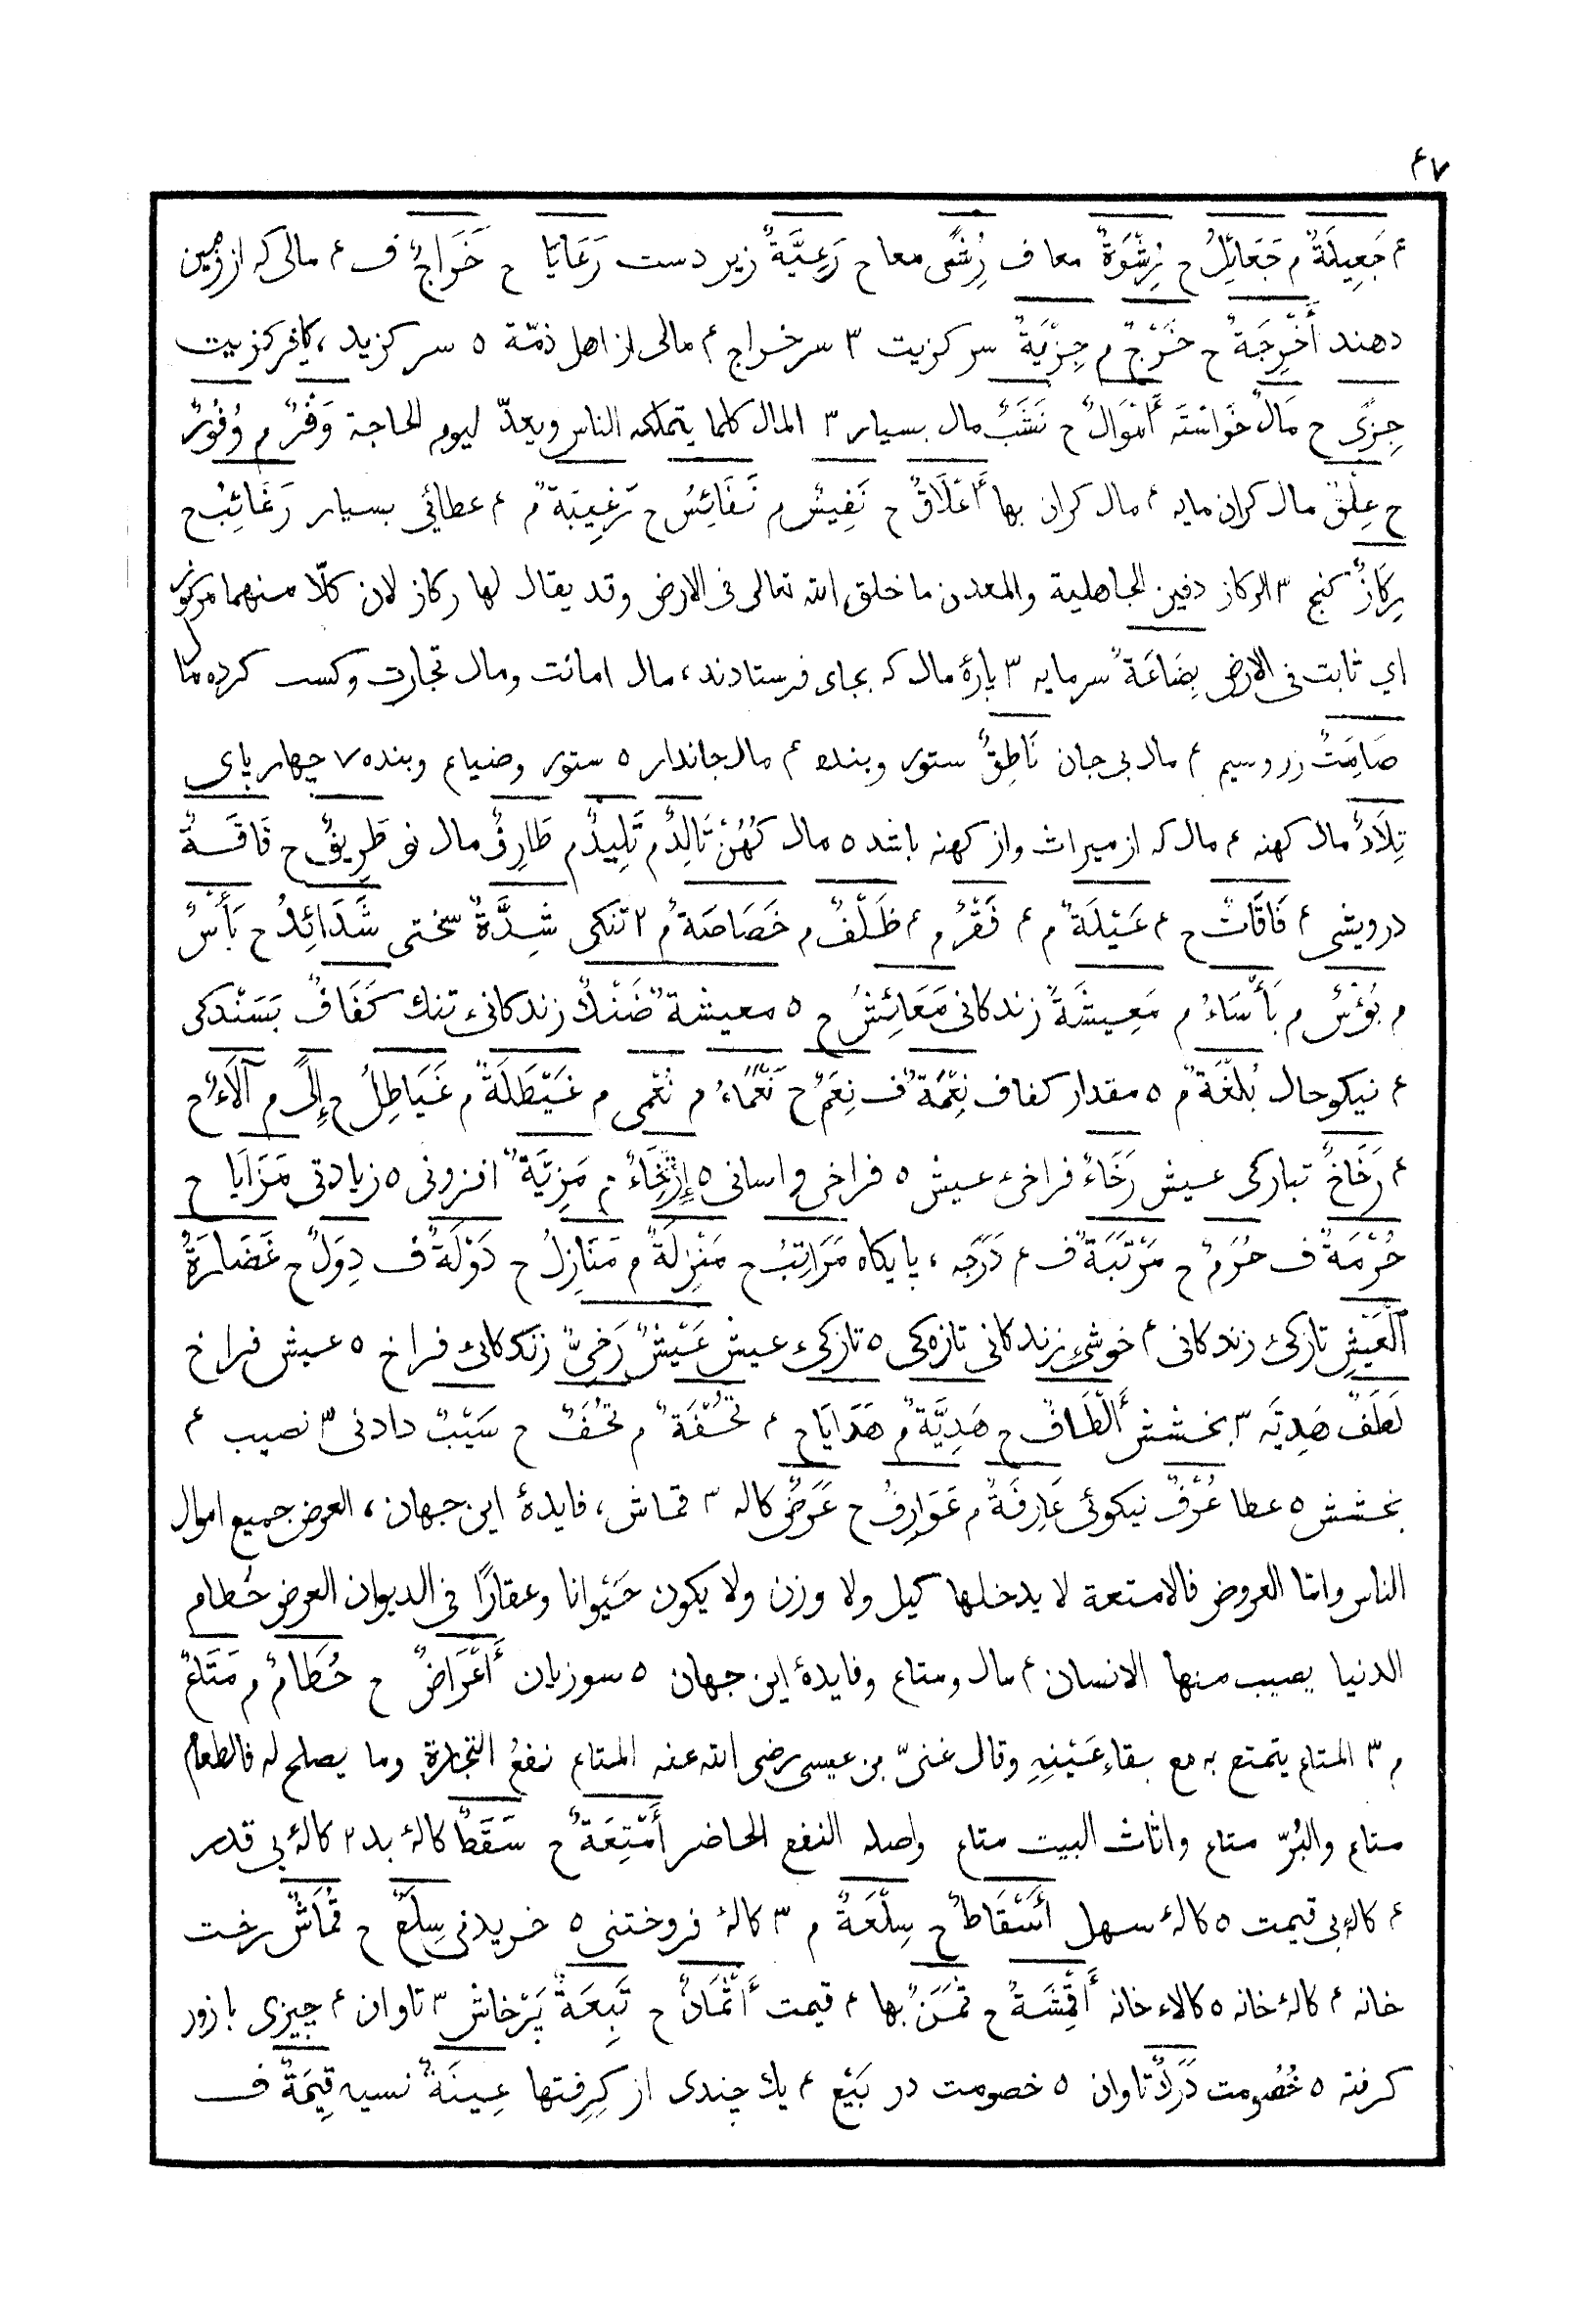 ۴۷
۴ جَعِيلَةٌ م جَعَائِلُ ح رِشْوَةٌ معا ف رُِشًى معا ح رَعِيَّةٌ زير دست رَعَايَا ح خَرَاجٌ ف ۴ مالى كه از زمين
دهند أَخْرِجَةٌ ح خَرْجٌ م جِزْيَةٌ سر كزيت ۳ سر خراج ۴ مالى از اهل ذمّة ۵ سر كزيد، كافر كزيت
جِزًى ح مَالٌ خَواسْتَه أَمْوَالٌ ح نَشَبٌ مال بسيار ۳ المال كلما يتملكه الناس ويعدّ ليوم الحاجة وَفْرٌ م وُفُورٌ
ح عِلْقٌ مال كران مايه ۴ مال كران بها أَعْلَاقٌ ح نَفِيسٌ م نَفَائِسُ ح رَغِيبَةٌ م ۴ عطائي بسيار رَغَائِبُ ح
رِكَازٌ كنج ۳ الركاز دفين الجاهلية والمعدن ما خلق الله تعالى فى الارض وقد يقال لها ركاز لان كلّا منهما مركوز
اي ثابت فى الارض بِضَاعَةٌ سرمايه ۳ پارهٔ مال كه بجاى فرستادند، مال امانت ومال تجارت وكست كرده مال
صَامِتٌ زر وسيم ۴ مال بى جان نَاطِقٌ ستور وبنده ۴ مال جاندار ۵ ستور وضياع وبنده ۷ چهار پاى
تِلَادٌ مال كهنه ۴ مال كه از ميراث واز كهنه باشد ۵ مال كُهُنْ تَالِدٌ م تَلِيدٌ م طَارِفٌ مال نو طَرِيفٌ ح فَاقَةٌ
درويشى ۴ فَاقَاتٌ ح ۴ عَيْلَةٌ م ۴ فَقْرٌ م ۴ ظَلْفٌ م خَصَاصَةٌ م ۲ تنكى شِدَّةٌ سختى شَدَائِدُ ح بَأْسٌ
م بُؤْسٌ م بَأْسَاءُ م مَعِيشَةٌ زندكانى مَعَائِشُ ح ۵ معيشة ضَنْكٌ زندكانىء تنك كَفَافٌ بَسَنْدكى
۴ نيكو حال بُلْغَةٌ م ۵ مقدار كفاف نِعْمَةٌ ف نِعَمٌ ح نَعْمَاءُ م نُعْمى م غَيْطَلَةٌ م غَيَاطِلُ ح إِلًى م آلَاءٌ ح
۴ رَخَاخٌ تباركى عيش رَخَاءٌ فراخىء عيش ۵ فراخى واسانى ۵ إِرْتِخَاءٌ م مَزِيَّةٌ افزونى ۵ زيادتى مَزَايَا ح
حُرْمَةٌ ف حُرَمٌ ح مَرْتَبَةٌ ف ۴ دَرَجه، پايكاه مَرَاتِبُ ح مَنْزِلَةٌ م مَنَازِلُ ح دَوْلَةٌ ف دِوَلٌ ح غَضَارَةُ
اَلْعَيْشِ تازكىء زندكانى ۴ خوشىء زندكانى تازه‌كى ۵ تازكىء عيش عَيْشٌ رَخِيٌّ زندكانىء فراخ ۵ عيش فراخ
لَطَفٌ هَدِيَه ۳ بخشش أَلْطَافٌ ح هَدِيَّةٌ م هَدَايَا ح ۴ تُحْفَةٌ م تُحَفٌ ح سَيْبٌ دادنى ۳ نصيب ۴
بخشش ۵ عطا عُرْفٌ نيكوئى عَارِفَةٌ م عَوَارِفُ ح عَرَضٌ كاله ۳ قماش، فايدهٔ اين جهان، العرض جميع اموال
الناس وامّا العروض فالامتعة لا يدخلها كيل ولا وزن ولا يكون حَيْوانا وعقارًا فى الديوان العرض حُطام
الدنيا يصيب منها الانسان ۴ مال ومتاع وفايدهٔ اين جهان ۵ سوزيان أَعْرَاضٌ ح حُطَامٌ م مَتَاعٌ
م ۳ المتاع يتمتع به مع بقاءِ عَيْنِهِ وقال غنىّ بن عيسى رضى الله عنه المتاع نفعُ التجارة وما يصلح له فالطعام
متاع والبُرّ متاع واثاث البيت متاع واصله النفع الحاضر أَمْتِعَةٌ ح سَقَطٌ كالهٔ بد ۲ كالهٔ بى قدر
۴ كالهٔ بى قيمت ۵ كالهٔ سهل أَسْقَاطٌ ح سِلْعَةٌ م ۳ كالهٔ فروختنى ۵ خريدنى سِلَعٌ ح قُمَاشٌ رخت
خانه ۴ كالهٔ خانه ۵ كالاء خانه أَقْمِشَةٌ ح ثَمَنٌ بها ۴ قيمت أَثْمَانٌ ح تَبِعَةٌ پَرْخاش ۳ تاوان ۴ چيزى با زور
كرفته ۵ خُصُومت دَرَكٌ تاوان ۵ خصومت در بَيْع ۴ يك چندى از كِرِفتها عِينَةٌ نسيه قِيمَةٌ ف